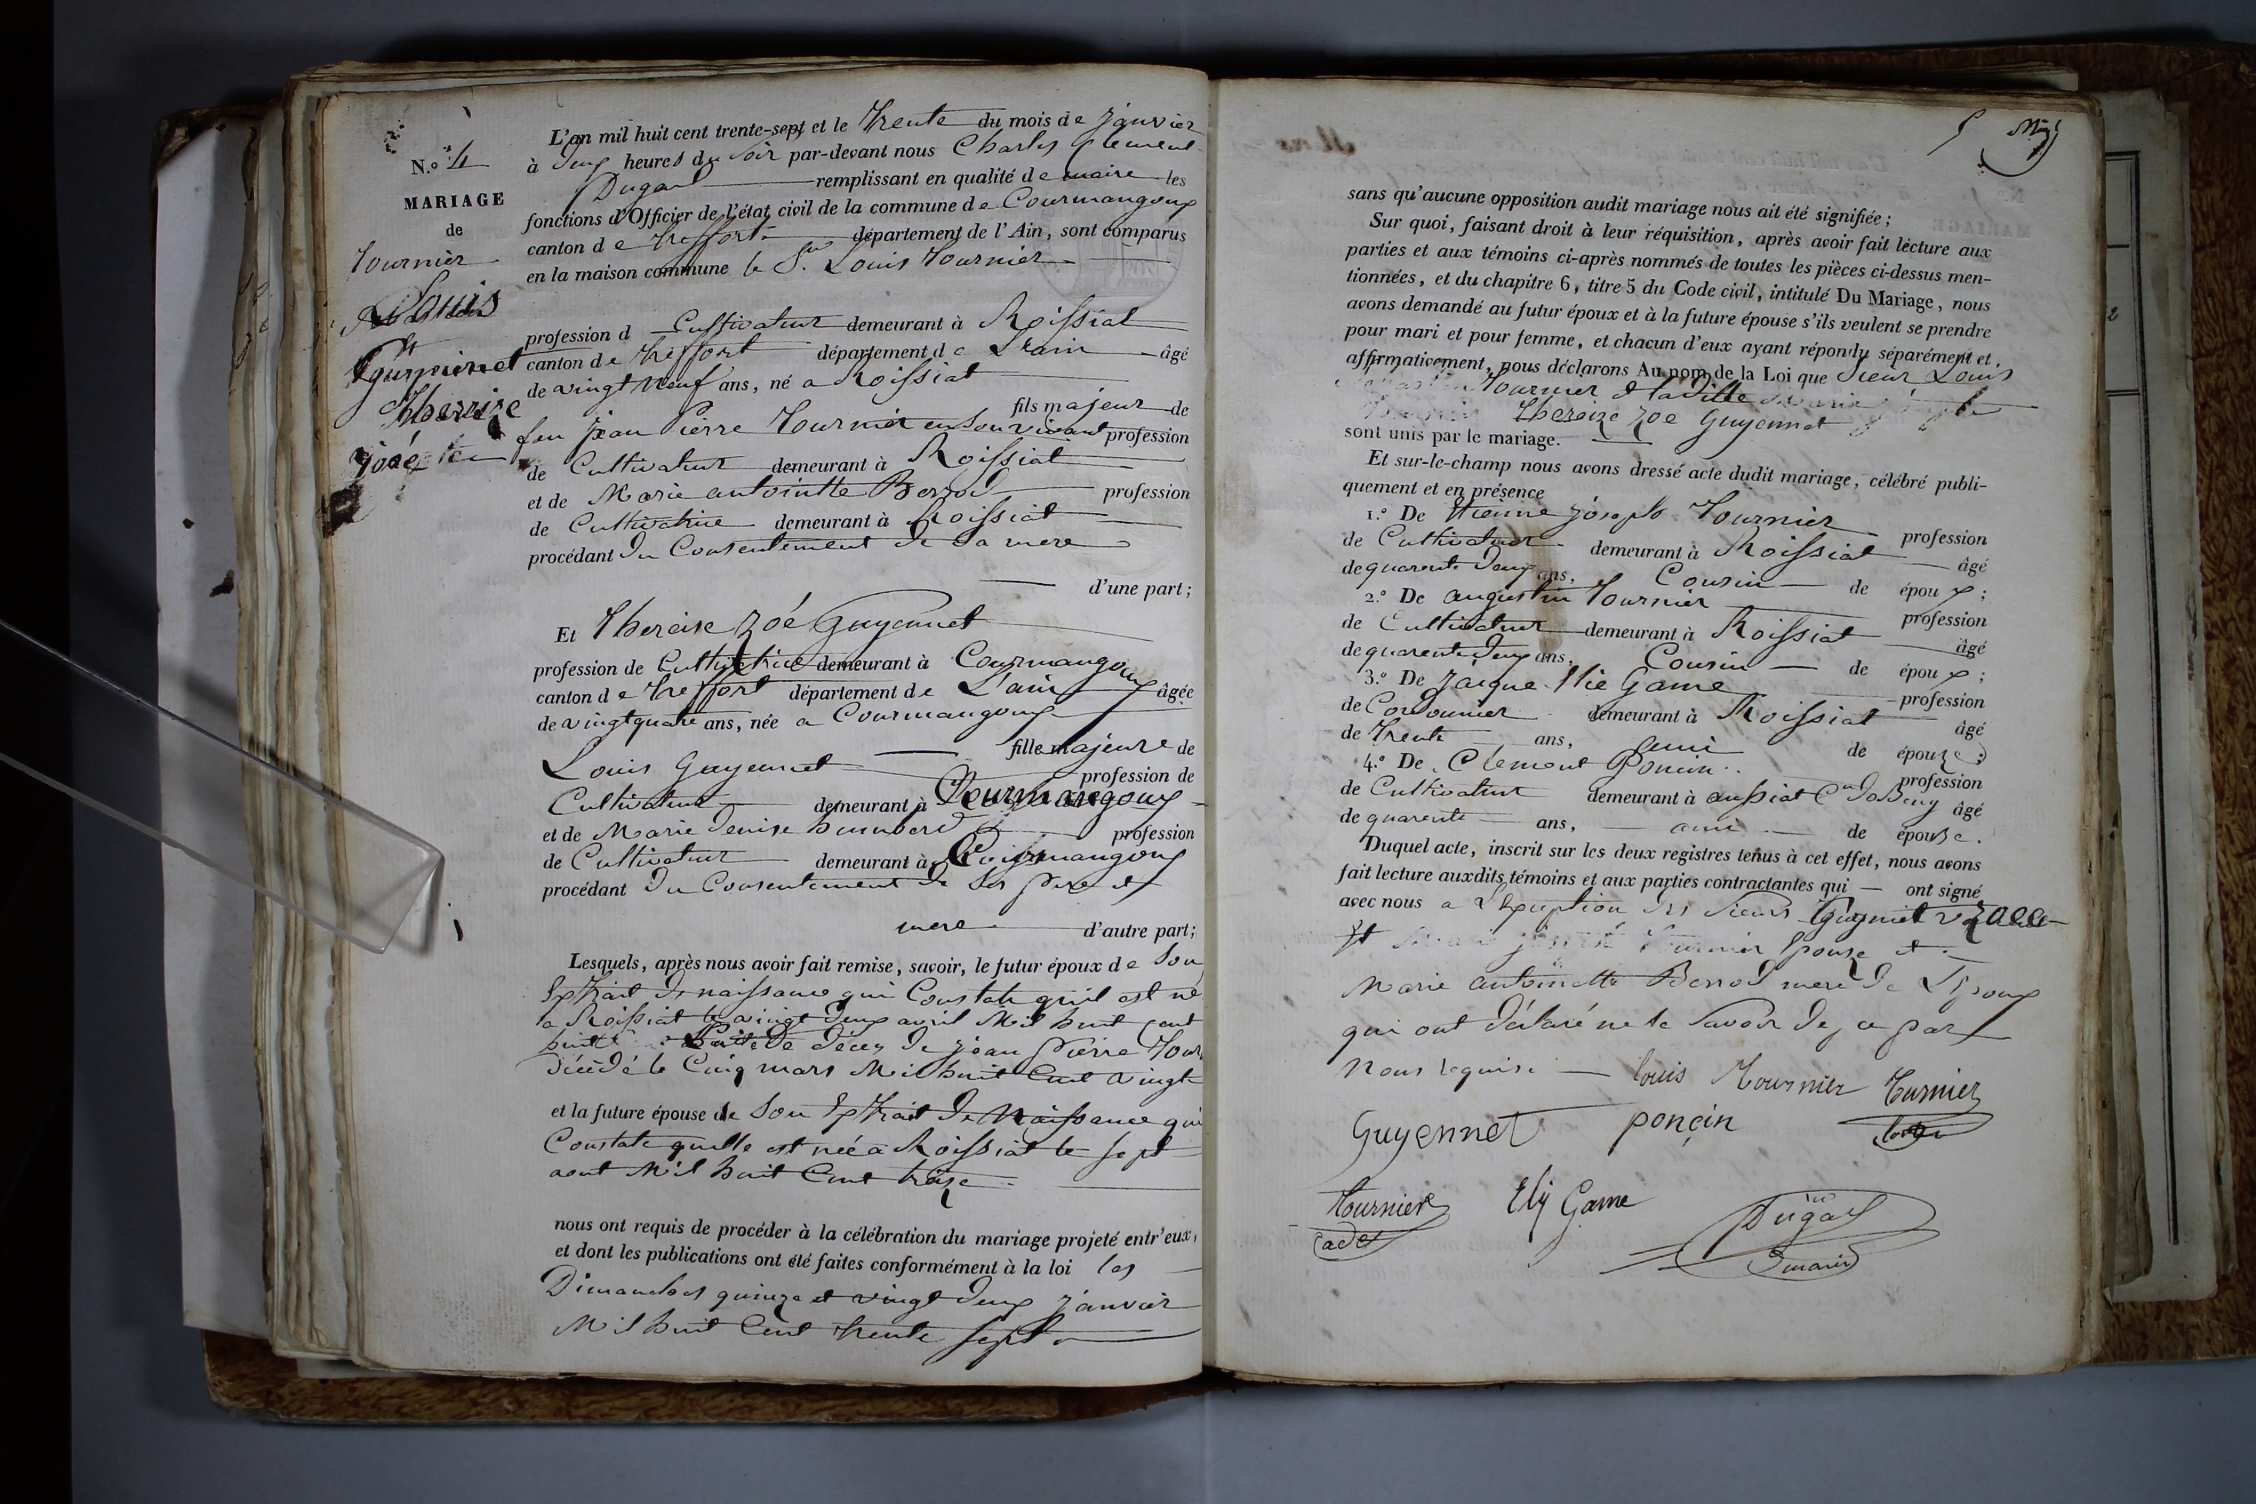 N.o 4
MARIAGE
de
Tournier
Louis
Et
guyennet
Thereize
zoé
L'an mil huit cent trente-sept et le trente du mois de janvier
à deux heures du soir par-devant nous Charles Clement
Dugad remplissant en qualité de maire les
fonctions d'Officier de l'état civil de la commune de Courmangoux
canton de treffort département de l'Ain, sont comparus
en la maison commune le Sr. Louis Tournier
profession d Cultivateur demeurant à Roissiat
canton de treffort département de L'ain âgé
de vingt neuf ans, né a Roissiat
fils majeur de
feu jean Pierre Tournier en son vivant profession
de Cultivateur demeurant à Roissiat
et de Marie antoinette Berrod profession
de Cultivatrice demeurant à Roissiat
procédant du Consentement de sa mere
d'une part;
Et Thereise Zoé Guyennet
profession de Cultivatrice demeurant à Courmangoux
canton de treffort département de L'ain âgée
de vingt quatre ans, née a Courmangoux
fille majeure de
Louis Guyennet profession de
Cultivateur demeurant à Courmangoux
et de Marie Denise humbert profession
de Cultivateur demeurant à Courmangoux
procédant du Consentement de ses pere et
mere d'autre part;
Lesquels, après nous avoir fait remise, savoir, le futur époux de Son
Extrait de naissance qui Constate qu'il est né
a Roissiat le vingt deux avril Mil huit Cent
huit de décez de jean Pierre Tour
décédé le Cinq mars Mil huit Cent vingt
et la future épouse de Son Extrait de Naissance qui
Constate quelle est née a Roissiat le sept
aout Mil huit Cent treize
nous ont requis de procéder à la célébration du mariage projeté entr'eux,
et dont les publications ont été faites conformément à la loi les
Dimanches quinze et vingt deux janvier
Mil huit Cent trente sept
5
sans qu'aucune opposition audit mariage nous ait été signifiée;
Sur quoi, faisant droit à leur réquisition, après avoir fait lecture aux
parties et aux témoins ci-après nommés de toutes les pièces ci-dessus men-
tionnées, et du chapitre 6, titre 5 du Code civil, intitulé Du Mariage, nous
avons demandé au futur époux et à la future épouse s'ils veulent se prendre
pour mari et pour femme, et chacun d'eux ayant répondu séparément et
affirmativement, nous déclarons Au nom de la Loi que Sieur Louis
Tournier et
Thereize zoé Guyennet
sont unis par le mariage.
Et sur-le-champ nous avons dressé acte dudit mariage, célébré publi-
quement et en présence
1.o De Etienne joseph Tournier profession
de Cultivateur demeurant à Roissiat âgé
de quarente deux ans, Cousin de époux;
2.o De augustin Tournier profession
de Cultivateur demeurant à Roissiat âgé
de quarente deux ans, Cousin de époux;
3.o De jacque Elie Game profession
de Cordonnier demeurant à Roissiat âgé
de trente ans, ami de épouze;
4.o De Clement Poncin profession
de Cultivateur demeurant à aussiat âgé
de quarente ans, ami de épouse.
Duquel acte, inscrit sur les deux registres tenus à cet effet, nous avons
fait lecture auxdits témoins et aux parties contractantes qui ont signé
avec nous a L'Exception des Sieurs Guyennet
Epouse et
Marie antoinette Berrod mere de L'Epoux
qui ont déclaré ne le Savoir de ce par
Nous requis
louis Tournier Turnier
Guyennet ponçin
Tournier Ely Game Dugad
cadet maire